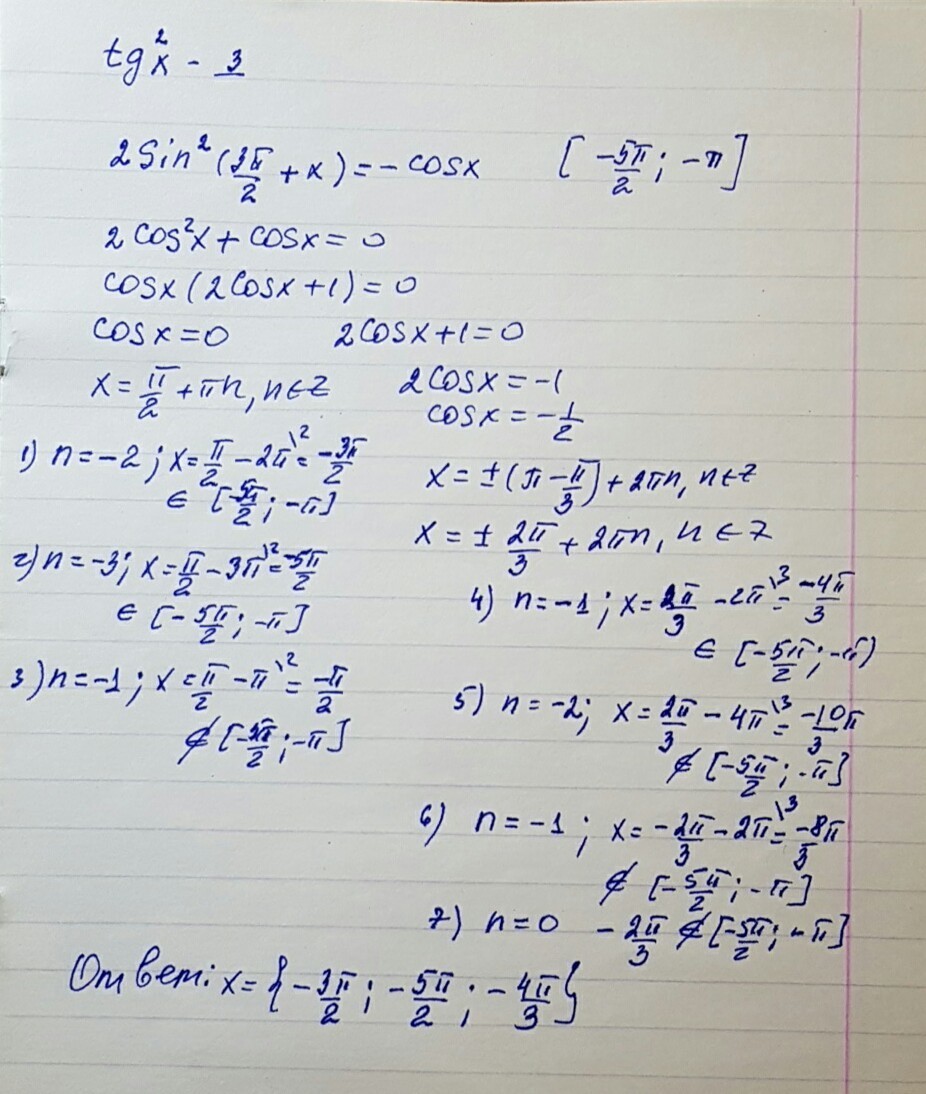 tg²x - 3
2 Sin²(3π/2 + x) = - cosx [-5π/2; -π]
2 cos²x + cosx = 0
cosx (2 cosx + 1) = 0
cosx = 0 2 cosx + 1 = 0
x = π/2 + πn, n ∈ Z 2 cosx = -1
cosx = -1/2
1) n = -2; x = π/2 - 2π\² = -3π/2
∈ [-5π/2; -π]
2) n = -3; x = π/2 - 3π\² = -5π/2
∈ [-5π/2; -π]
3) n = -1; x = π/2 - π\² = -π/2
∉ [-5π/2; -π]
x = ±(π - π/3) + 2πn, n ∈ Z
x = ± 2π/3 + 2πn, n ∈ Z
4) n = -1; x = 2π/3 - 2π\³ = -4π/3
∈ [-5π/2; -π)
5) n = -2; x = 2π/3 - 4π\³ = -10π/3
∉ [-5π/2; -π]
6) n = -1; x = -2π/3 - 2π\³ = -8π/3
∉ [-5π/2; -π]
7) n = 0 - 2π/3 ∉ [-5π/2; -π]
Ответ: x = {-3π/2; -5π/2; -4π/3}